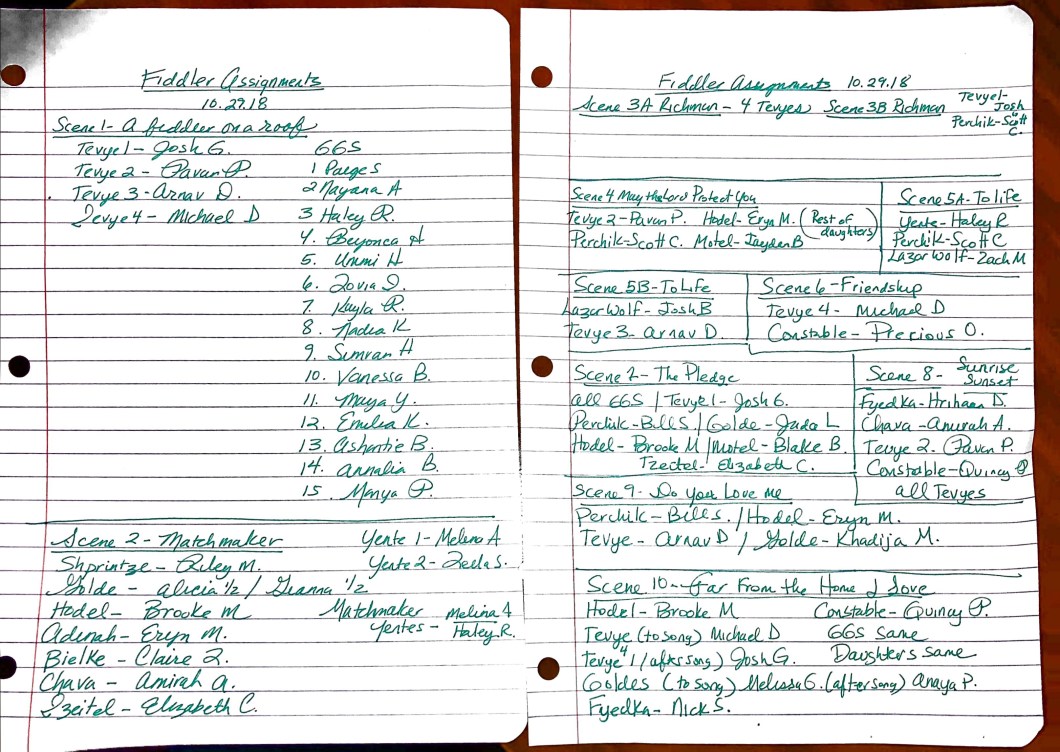 Fiddler Assignments
10.29.18
Scene 1 - A fiddler on a roof
Tevye 1 - Josh G. 66S
Tevye 2 - Pavan P. 1 Paige S
Tevye 3 - Arnav D. 2 Nayana A
Tevye 4 - Michael D 3 Haley R.
4. Beyonca H
5. Ummi H
6. Zovia D.
7. Kayla R.
8. Nadia K
9. Simran H
10. Vanessa B.
11. Maya Y.
12. Emilia K.
13. Ashantie B.
14. Annalia B.
15 Monya P.
Scene 2 - Matchmaker Yente 1 - Melina A
Shprintze - Riley M. Yente 2 - Zeela S.
Golde - Alicia 1/2 / Gianna 1/2
Hodel - Brooke M Matchmaker Melina A
Adinah - Eryn M. Yentes - Haley R.
Bielke - Claire Z.
Chava - Amirah A.
Tzeitel - Elizabeth C.
Fiddler Assignments 10.29.18
Scene 3A Richman - 4 Tevyes Scene 3B Richman Tevye 1 - Josh G
Perchik - Scott C.
Scene 4 May the Lord Protect You
Tevye 2 - Pavan P. Hodel - Eryn M. (Rest of daughters)
Perchik - Scott C. Motel - Jayden B
Scene 5A - To life
Yente - Haley R
Perchik - Scott C
Lazar Wolf - Zach M
Scene 5B - To Life
Lazar Wolf - Josh B
Tevye 3 - Arnav D.
Scene 6 - Friendship
Tevye 4 - Michael D
Constable - Precious O.
Scene 7 - The Pledge
all 66S / Tevye 1 - Josh G.
Perchik - Bill S. / Golde - Jada L
Hodel - Brooke M / Motel - Blake B
Tzeitel - Elizabeth C.
Scene 8 - Sunrise Sunset
Fyedka - Hrihaan D.
Chava - Amirah A.
Tevye 2. Pavan P.
Constable - Quincy P
all Tevyes
Scene 9 - Do you Love me
Perchik - Bill S. / Hodel - Eryn M.
Tevye - Arnav D / Golde - Khadija M.
Scene 10 - Far From the Home I Love
Hodel - Brooke M Constable - Quincy P.
Tevye 4 (to song) Michael D 66S same
Tevye 1 / (after song) Josh G. Daughters same
Goldes (to song) Melissa G. (after song) Anaya P.
Fyedka - Nick S.